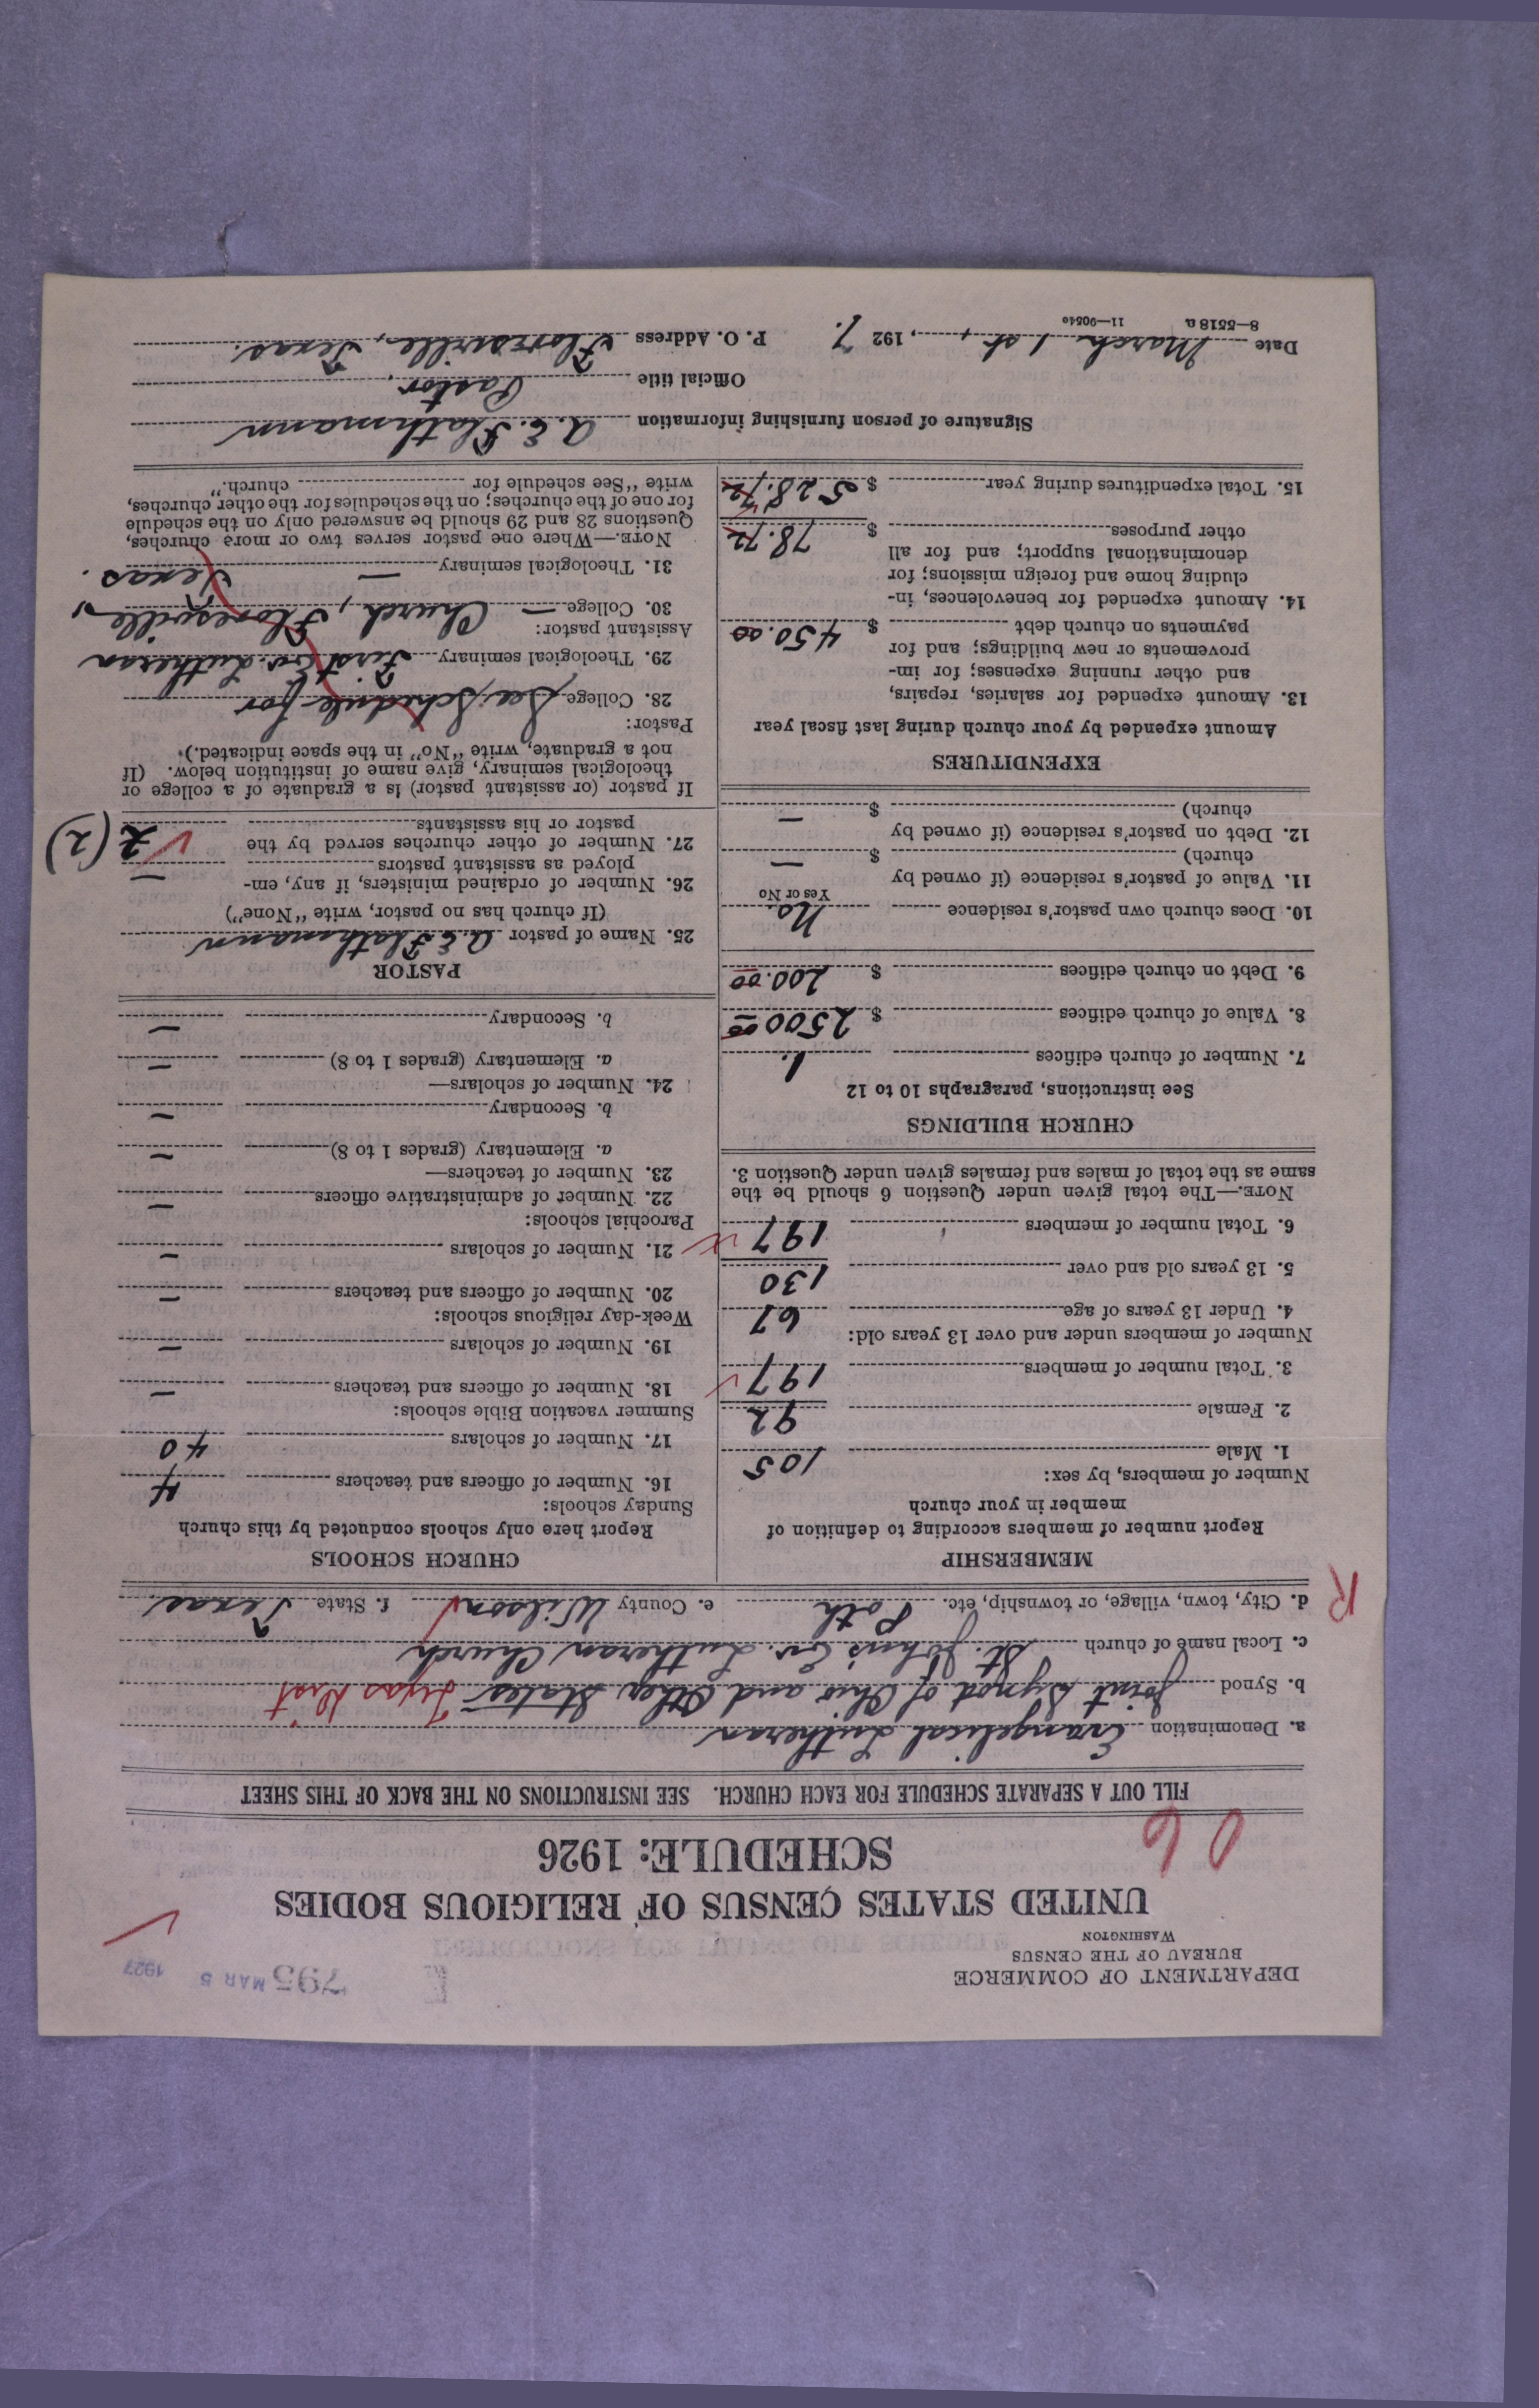 DEPARTMENT OF COMMERCE
BUREAU OF THE CENSUS
WASHINGTON
E
795 MAR 5 1927
UNITED STATES CENSUS OF RELIGIOUS BODIES
SCHEDULE: 1926
06
FILL OUT A SEPARATE SCHEDULE FOR EACH CHURCH. SEE INSTRUCTIONS ON THE BACK OF THIS SHEET
a. Denomination Evangelical Lutheran
b. Synod Joint Synod of Ohio and Other States Texas Dist
c. Local name of church St. John's Ev. Lutheran Church
R
d. City, town, village, or township, etc. Poth e. County Wilson f. State Texas.
MEMBERSHIP
Report number of members according to definition of
member in your church
Number of members, by sex:
1. Male 105
2. Female 92
3. Total number of members 197
Number of members under and over 13 years old:
4. Under 13 years of age 67
5. 13 years old and over 130
6. Total number of members 197
NOTE.—The total given under Question 6 should be the
same as the total of males and females given under Question 3.
CHURCH BUILDINGS
See instructions, paragraphs 10 to 12
7. Number of church edifices 1.
8. Value of church edifices $ 2500.00
9. Debt on church edifices $ 200.00
10. Does church own pastor's residence No.
Yes or No
11. Value of pastor's residence (if owned by
church) $ —
12. Debt on pastor's residence (if owned by
church) $ —
EXPENDITURES
Amount expended by your church during last fiscal year
13. Amount expended for salaries, repairs,
and other running expenses; for im-
provements or new buildings; and for
payments on church debt $ 450.00
14. Amount expended for benevolences, in-
cluding home and foreign missions; for
denominational support; and for all
other purposes $ 78.72
15. Total expenditures during year $ 528.72
CHURCH SCHOOLS
Report here only schools conducted by this church
Sunday schools:
16. Number of officers and teachers 4
17. Number of scholars 40
Summer vacation Bible schools:
18. Number of officers and teachers —
19. Number of scholars —
Week-day religious schools:
20. Number of officers and teachers —
21. Number of scholars —
Parochial schools:
22. Number of administrative officers —
23. Number of teachers—
a. Elementary (grades 1 to 8) —
b. Secondary —
24. Number of scholars—
a. Elementary (grades 1 to 8) —
b. Secondary —
PASTOR
25. Name of pastor A. E. Flathmann
(If church has no pastor, write "None")
26. Number of ordained ministers, if any, em-
ployed as assistant pastors —
27. Number of other churches served by the
pastor or his assistants 2 (2)
If pastor (or assistant pastor) is a graduate of a college or
theological seminary, give name of institution below. (If
not a graduate, write "No" in the space indicated.)
Pastor:
28. College See Schedule for
29. Theological seminary First Ev. Lutheran
Assistant pastor:
30. College — Church, Floresville,
31. Theological seminary — Texas.
NOTE.—Where one pastor serves two or more churches,
Questions 28 and 29 should be answered only on the schedule
for one of the churches; on the schedules for the other churches,
write "See schedule for church."
Signature of person furnishing information A. E. Flathmann
Official title Pastor.
Date March 1st, 1927. P. O. Address Floresville, Texas.
8—5518 a 11—9054c